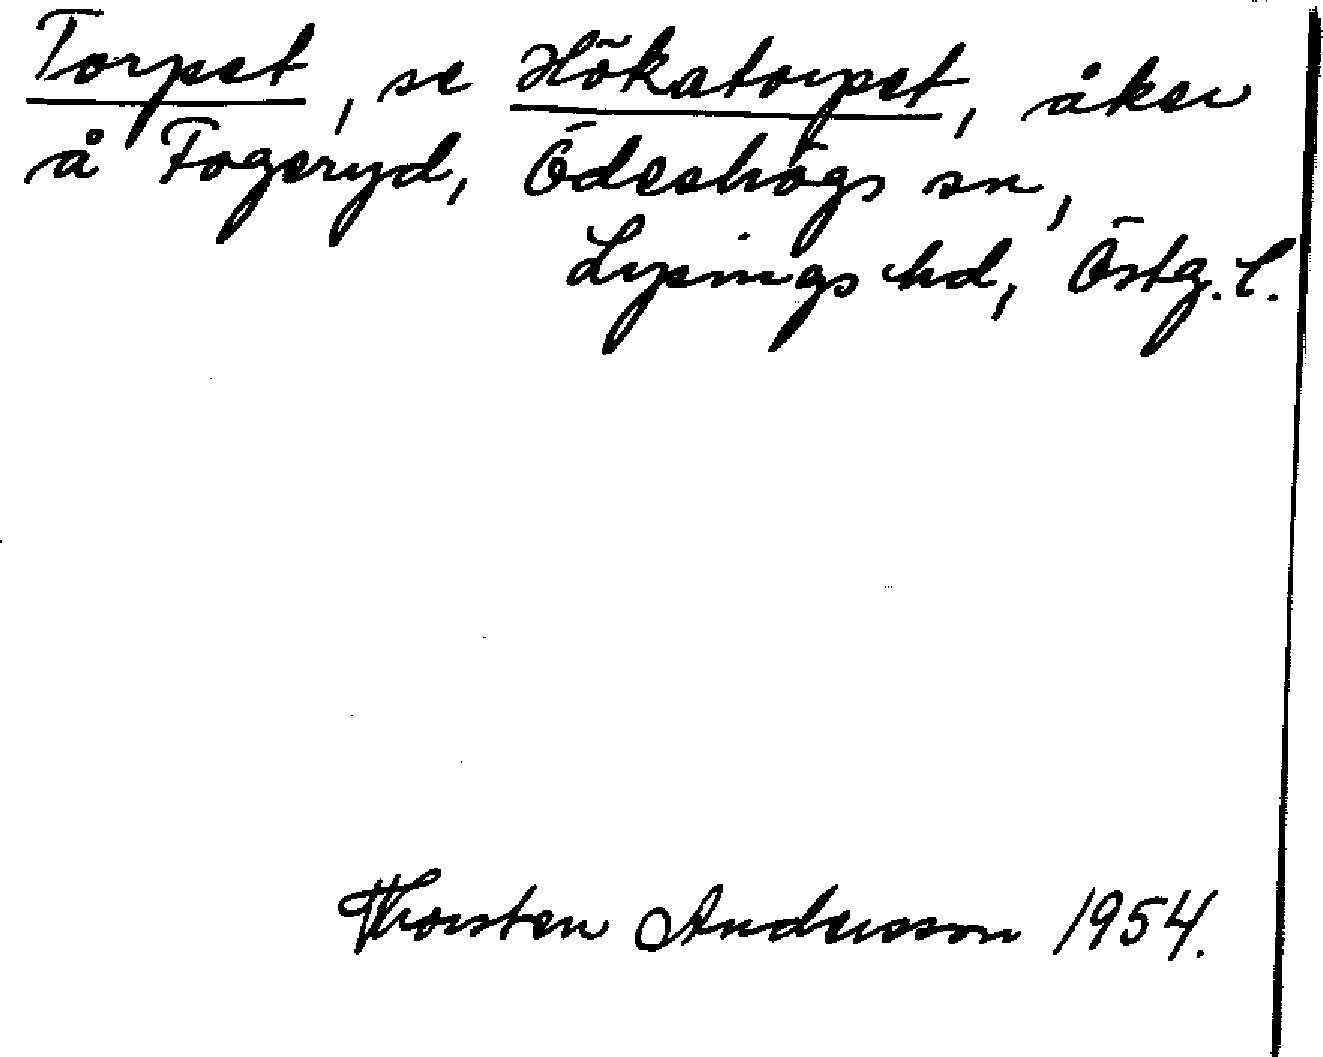 Torpet, se Hökatorpet, åker
å Fogeryd, Ödeshögs sn,
Lysings hd, Östg. l.
Thorsten Andersson 1954.